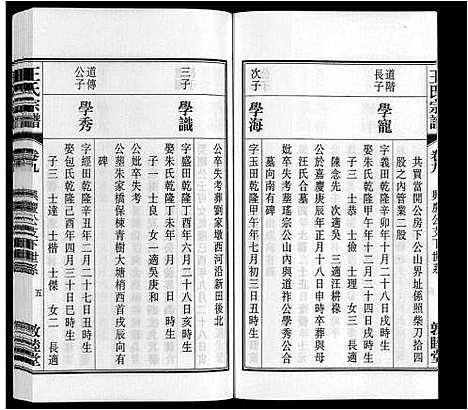 王氏宗譜
卷九
興讓公支下世系
敦睦堂
共買當開公房下公山界址係照柴刀拾四
股之內管業三股
道階
長子
學寵
字義田乾隆辛卯年十月二十八日戌時生
娶朱氏乾隆甲午年十二月二十四日戌時生
子三 士恭 士儉 士理 女三 長適
陳念先 次適吳 三適汪耕祿
公於嘉慶庚辰年正月十八日申時卒葬與母
汪氏合墓
妣卒失考葬瑤琮公山內與道祚公學秀公合
墓向南有碑
次子
學海
字玉田乾隆甲午年七月初三日丑時生
公卒失考葬劉家墩西河沿新田後北
三子
學識
字 乾隆丁酉年六月二十八日亥時生
娶朱氏乾隆丁未年 月 日 時生
子一 士良 女一適吳庚和
公墓朱家橋保棟青樹大塘梢西首戌辰向有
碑
公妣卒失考
道傳
公子
學秀
字經田乾隆辛丑年二月十七日丑時生
娶包氏乾隆己酉年四月三十日巳時生
子三 士達 士楷 士傑 女二 長適
王氏宗譜
卷九
興讓公支下世系
五
敦睦堂